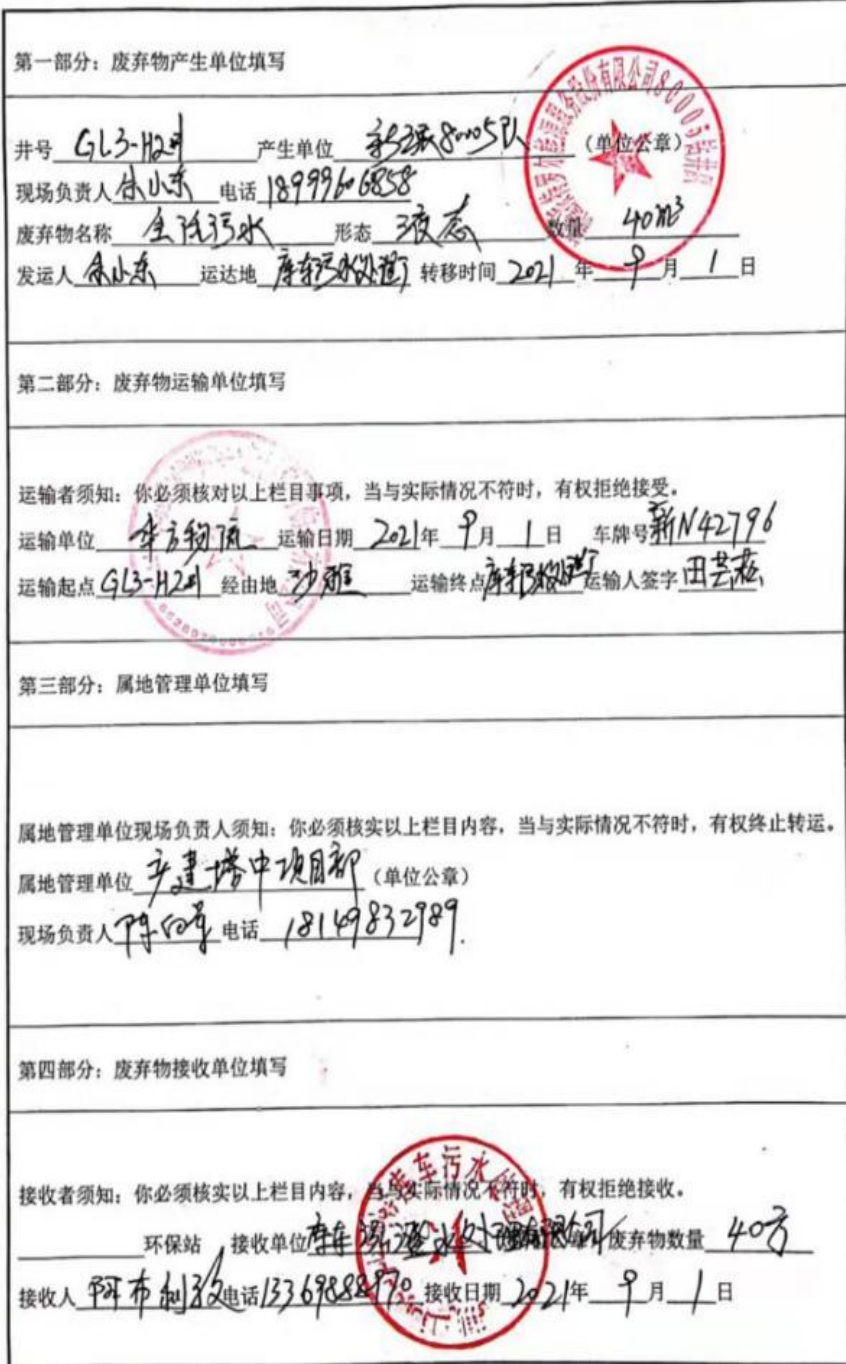 第一部分：废弃物产生单位填写
井号 GL3-H2井 产生单位 新疆80005队 （单位公章）
现场负责人 余小东 电话 18999606858
废弃物名称 生活污水 形态 液态 数量 40m³
发运人 余小东 运达地 库车污水处理厂 转移时间 2021 年 9 月 1 日
第二部分：废弃物运输单位填写
运输者须知：你必须核对以上栏目事项，当与实际情况不符时，有权拒绝接受。
运输单位 华方物流 运输日期 2021年 9月 1日 车牌号 新N42796
运输起点 GL3-H2井 经由地 沙雅 运输终点 库车污水处理厂 运输人签字 田芸菘
第三部分：属地管理单位填写
属地管理单位现场负责人须知：你必须核实以上栏目内容，当与实际情况不符时，有权终止转运。
属地管理单位 产建塔中项目部 （单位公章）
现场负责人 电话 18149832989.
第四部分：废弃物接收单位填写
接收者须知：你必须核实以上栏目内容，当与实际情况不符时，有权拒绝接收。
环保站 接收单位 库车 水处理有限公司 废弃物数量 40方
接收人 阿布利孜 电话 13369888970 接收日期 2021年 9月 1日